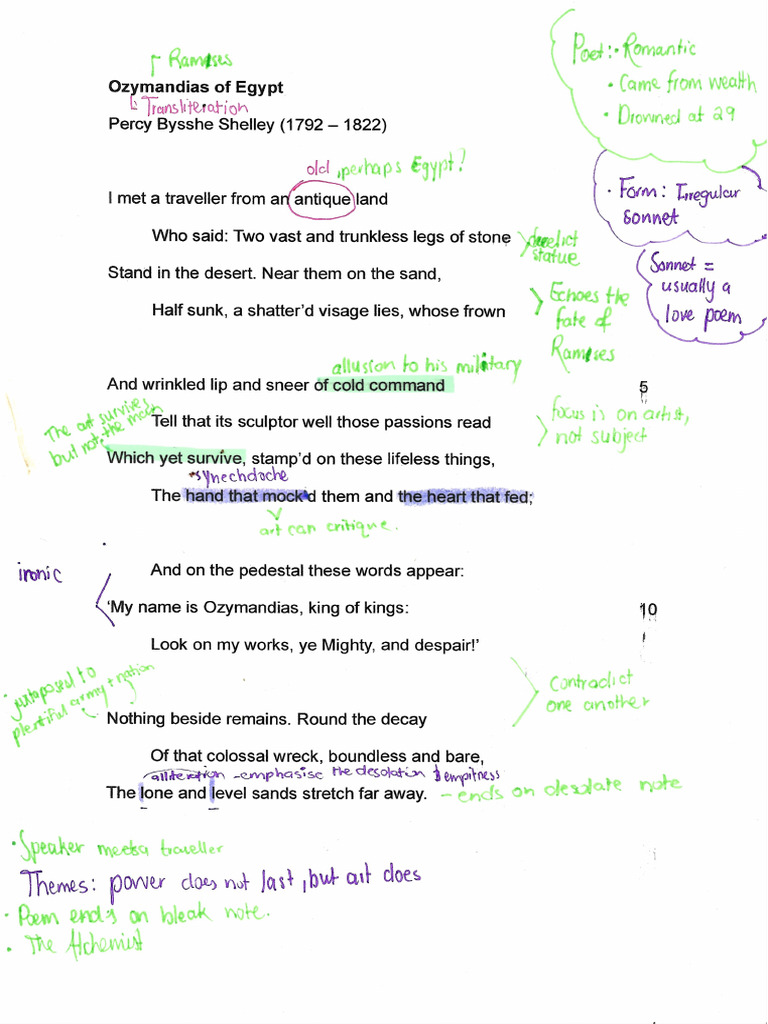 Rameses
Ozymandias of Egypt
Transliteration
Percy Bysshe Shelley (1792 – 1822)
Poet: • Romantic
• Came from wealth
• Drowned at 29
• Form: Irregular
sonnet
Sonnet =
usually a
love poem
old, perhaps Egypt?
I met a traveller from an antique land
Who said: Two vast and trunkless legs of stone
derelict
statue
Stand in the desert. Near them on the sand,
Half sunk, a shatter’d visage lies, whose frown
Echoes the
fate of
Rameses
allusion to his military
And wrinkled lip and sneer of cold command
5
Tell that its sculptor well those passions read
focus is on artist,
not subject
The art survives
but not the man
Which yet survive, stamp’d on these lifeless things,
synechdoche
The hand that mock’d them and the heart that fed;
art can critique.
And on the pedestal these words appear:
ironic
‘My name is Ozymandias, king of kings:
10
Look on my works, ye Mighty, and despair!’
Contradict
one another
juxtaposed to
plentiful army + nation
Nothing beside remains. Round the decay
Of that colossal wreck, boundless and bare,
alliteration - emphasise the desolation & empitness
The lone and level sands stretch far away.
- ends on desolate note
• Speaker meets a traveller
Themes: power does not last, but art does
• Poem ends on bleak note.
• The Alchemist